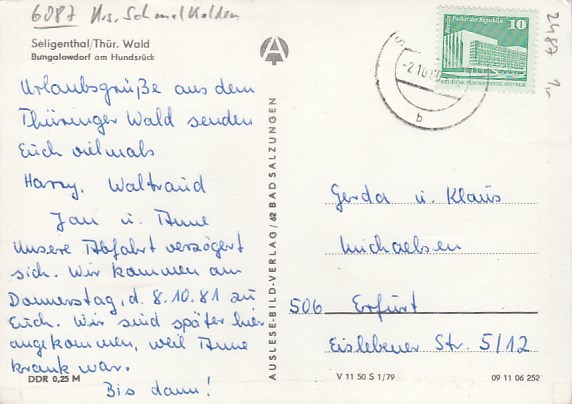 6087 Krs. Schmalkalden
Seligenthal/Thür. Wald
Bungalowdorf am Hundsrück
Urlaubsgrüße aus dem
Thüringer Wald senden
Euch vielmals
Harry, Waltraud
Jan u. Anne
Unsere Abfahrt verzögert
sich. Wir kommen am
Donnerstag, d. 8.10.81 zu
Euch. Wir sind später hier
angekommen, weil Anne
krank war.
Bis dann!
DDR 0,25 M
AUSLESE-BILD-VERLAG/62 BAD SALZUNGEN
Palast der Republik
10
b
2487
Gerda u. Klaus
Michaelsen
506 Erfurt
Eislebener Str. 5/12
V 11 50 S 1/79
09 11 06 252